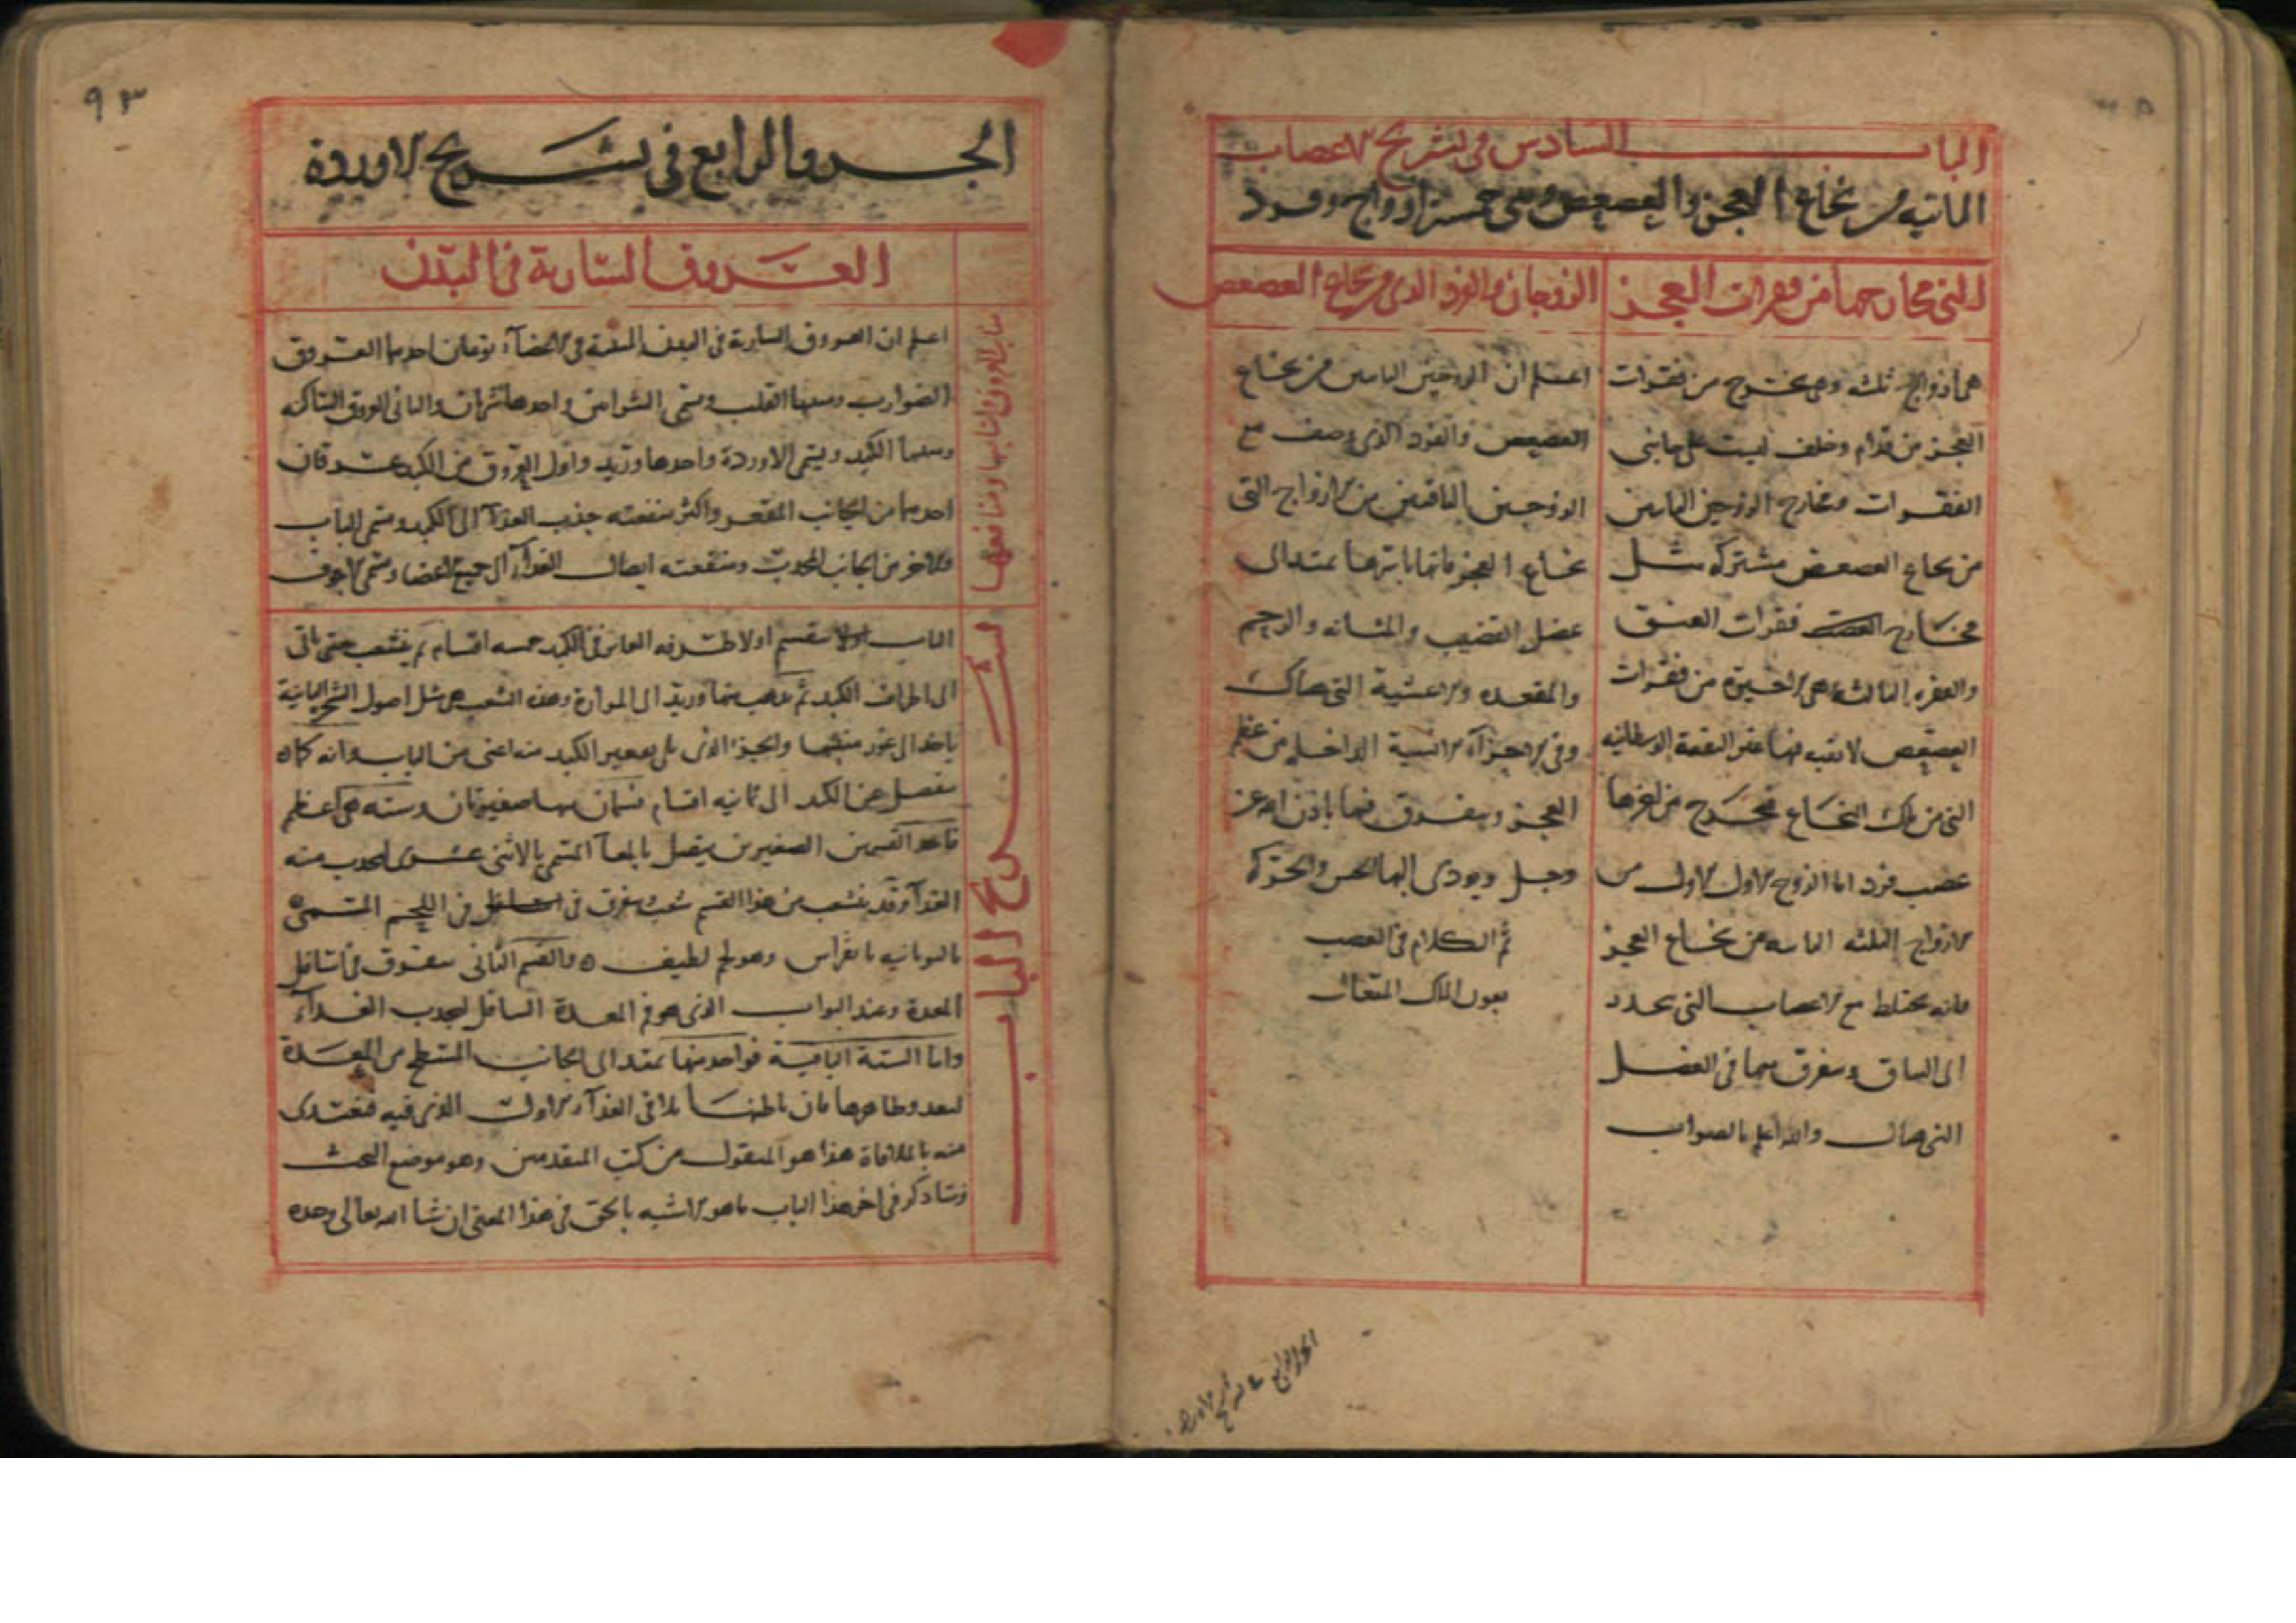 الباب السادس في تشريح الاعصاب
النابتة من نخاع العجز والعصعص وهي خمسة ازواج وفرد
التي مخارجها من فقرات العجز
هي ازواج ثلثه وهي تخرج من فقرات
العجز من قدام وخلف ليست على جانبي
الفقرات ومخارج الزوجين النابتين
من نخاع العصعص مشتركه مثل
مخارج فقرات العنق
والفقره الثالثه هي الاخيرة من فقرات
العصعص لا ثقبه لها غير الثقبة الوسطانيه
التي من تلك النخاع تخرج من اخرها
عصب فرد اما الزوج الاول الاول من
الازواج الثلثه النابته من نخاع العجز
فانه يختلط مع الاعصاب التي تنحدر
الى الساق ويتفرق معها في العضل
التي هناك والله اعلم بالصواب
الزوجان والفرد الذي من نخاع العصعص
اعلم ان الزوجين النابتين من نخاع
العصعص والفرد الذي وصف مع
الزوجين الباقيين من الازواج التي
نخاع العجز فانها باسرها تمتد الى
عضل القضيب والمثانه والرحم
والمقعده والاغشية التي هناك
وفي الاجزاء الانسية الداخله من عظم
العجز ويتفرق فيها باذن الله عز
وجل ويودى اليها الحس والحركة
تم الكلام في العصب
بعون الملك المتعال
الجزو الرابع في تشريح الاوردة
٩٣
الجزو الرابع في تشريح الاوردة
العروق السارية في البدن
اعلم ان العروق السارية في البدن المنبثة في الاعضاء نوعان احدهما العروق
الضوارب ومنبتها القلب وتسمى الشرايين واحدها شريان والثاني العروق الساكنه
ومنبتها الكبد ويسمى الاوردة واحدها وريد واول العروق من الكبد عرقان
احدهما من الجانب المقعر واكثر منفعته جذب الغذاء الى الكبد ويسمى الباب
والاخر من الجانب المحدب ومنفعته ايصال الغذاء الى جميع الاعضا ويسمى الاجوف
تشريح الباب
الباب ينقسم اولا طرفه الغاير في الكبد خمسه اقسام ثم يتشعب حتى ياتي
الى اطراف الكبد ثم يذهب منها وريد الى المرارة وهذه الشعب هي مثل اصول الشجر النابتة
ياخذ الى غور منبتها والجزء الذي يلي تقعير الكبد منه اعنى من الباب فانه كما
ينفصل عن الكبد الى ثمانيه اقسام قسمان منها صغيرتان وسته هي اعظم
فاحد القسمين الصغيرين يتصل بالمعا المسمى بالاثنى عشرى ليجذب منه
الغذاء وقد يتشعب من هذا القسم شعب يتفرق في اللحم المسمى
باليونانيه بانقراس وهو لحم لطيف والقسم الثاني يتفرق في اسافل
المعدة وعند البواب الذي هو فم المعدة السافل ليجذب الغذاء
واما الستة الباقية فواحد منها يمتد الى الجانب المسطح من المعدة
ليغذو ظاهرها فان باطنها يلاقي الغذاء الاول الذي فيه فيغتذى
منه بالملاقاة هذا هو المنقول من كتب المتقدمين وهو موضع البحث
وسنذكر في اخر هذا الباب ما هو الاشبه بالحق في هذا المعنى ان شا الله تعالى وحده